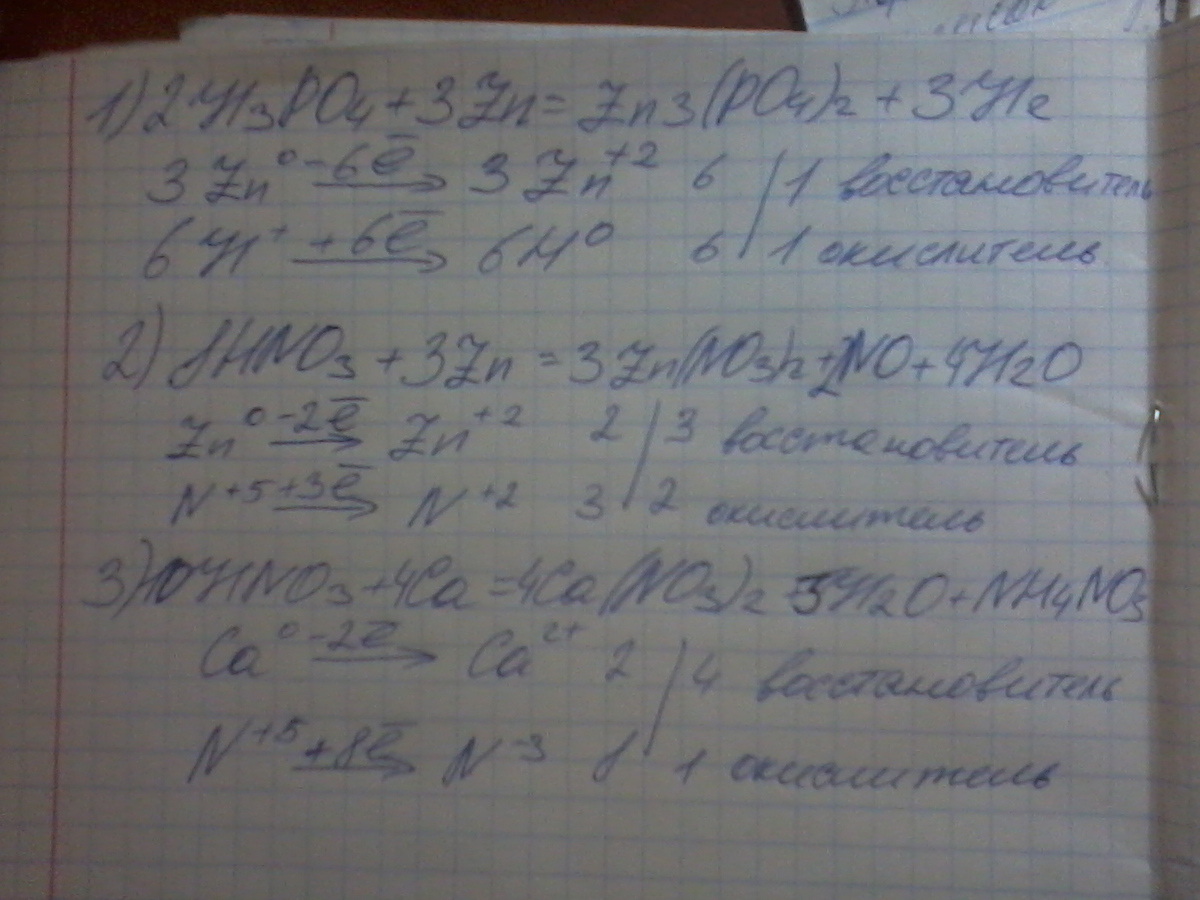 1) 2H₃PO₄ + 3Zn = Zn₃(PO₄)₂ + 3H₂
3Zn⁰ –6ē→ 3Zn⁺² 6 / 1 восстановитель
6H⁺ +6ē→ 6H⁰ 6 / 1 окислитель
2) 8HNO₃ + 3Zn = 3Zn(NO₃)₂ + 2NO + 4H₂O
Zn⁰ –2ē→ Zn⁺² 2 / 3 восстановитель
N⁺⁵ +3ē→ N⁺² 3 / 2 окислитель
3) 10HNO₃ + 4Ca = 4Ca(NO₃)₂ + 3H₂O + NH₄NO₃
Ca⁰ –2ē→ Ca²⁺ 2 / 4 восстановитель
N⁺⁵ +8ē→ N⁻³ 8 / 1 окислитель